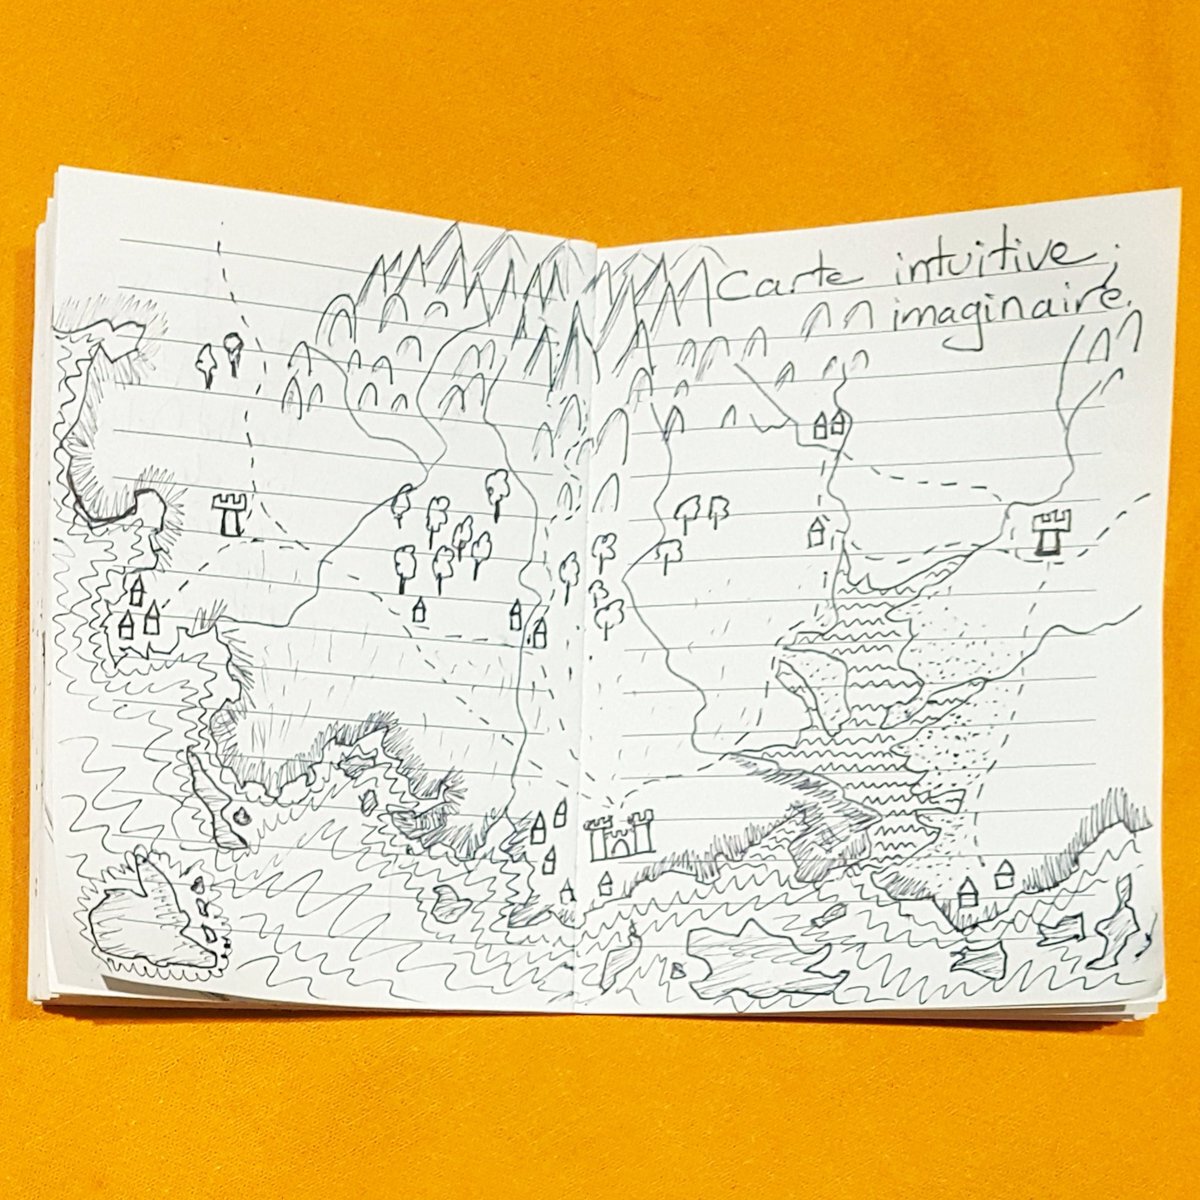 Carte intuitive,
imaginaire.